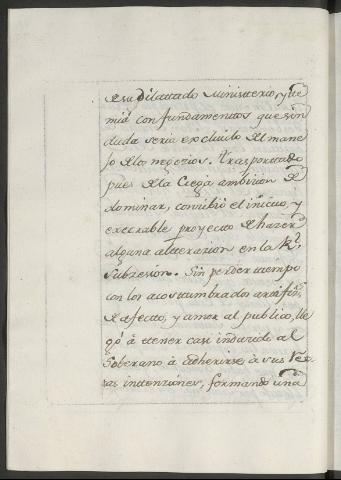 de su dilattado Ministterio, y te
mia con fundamenttos que sin
duda seria excluido del mane
jo de los negozios. Trasporttado
pues de la Ciega ambizion de
dominar, conzibió el inicuo, y
execrable proyectto de hazer
alguna altterazion en la Rl.
Subzesion. Sin perder ttiempo
con los acosttumbrados arttifizs.
de afectto, y amor al publico, lle
gó á ttener casi induzido al
Soberano á adherirse á sus
sas inttenziones, formando una